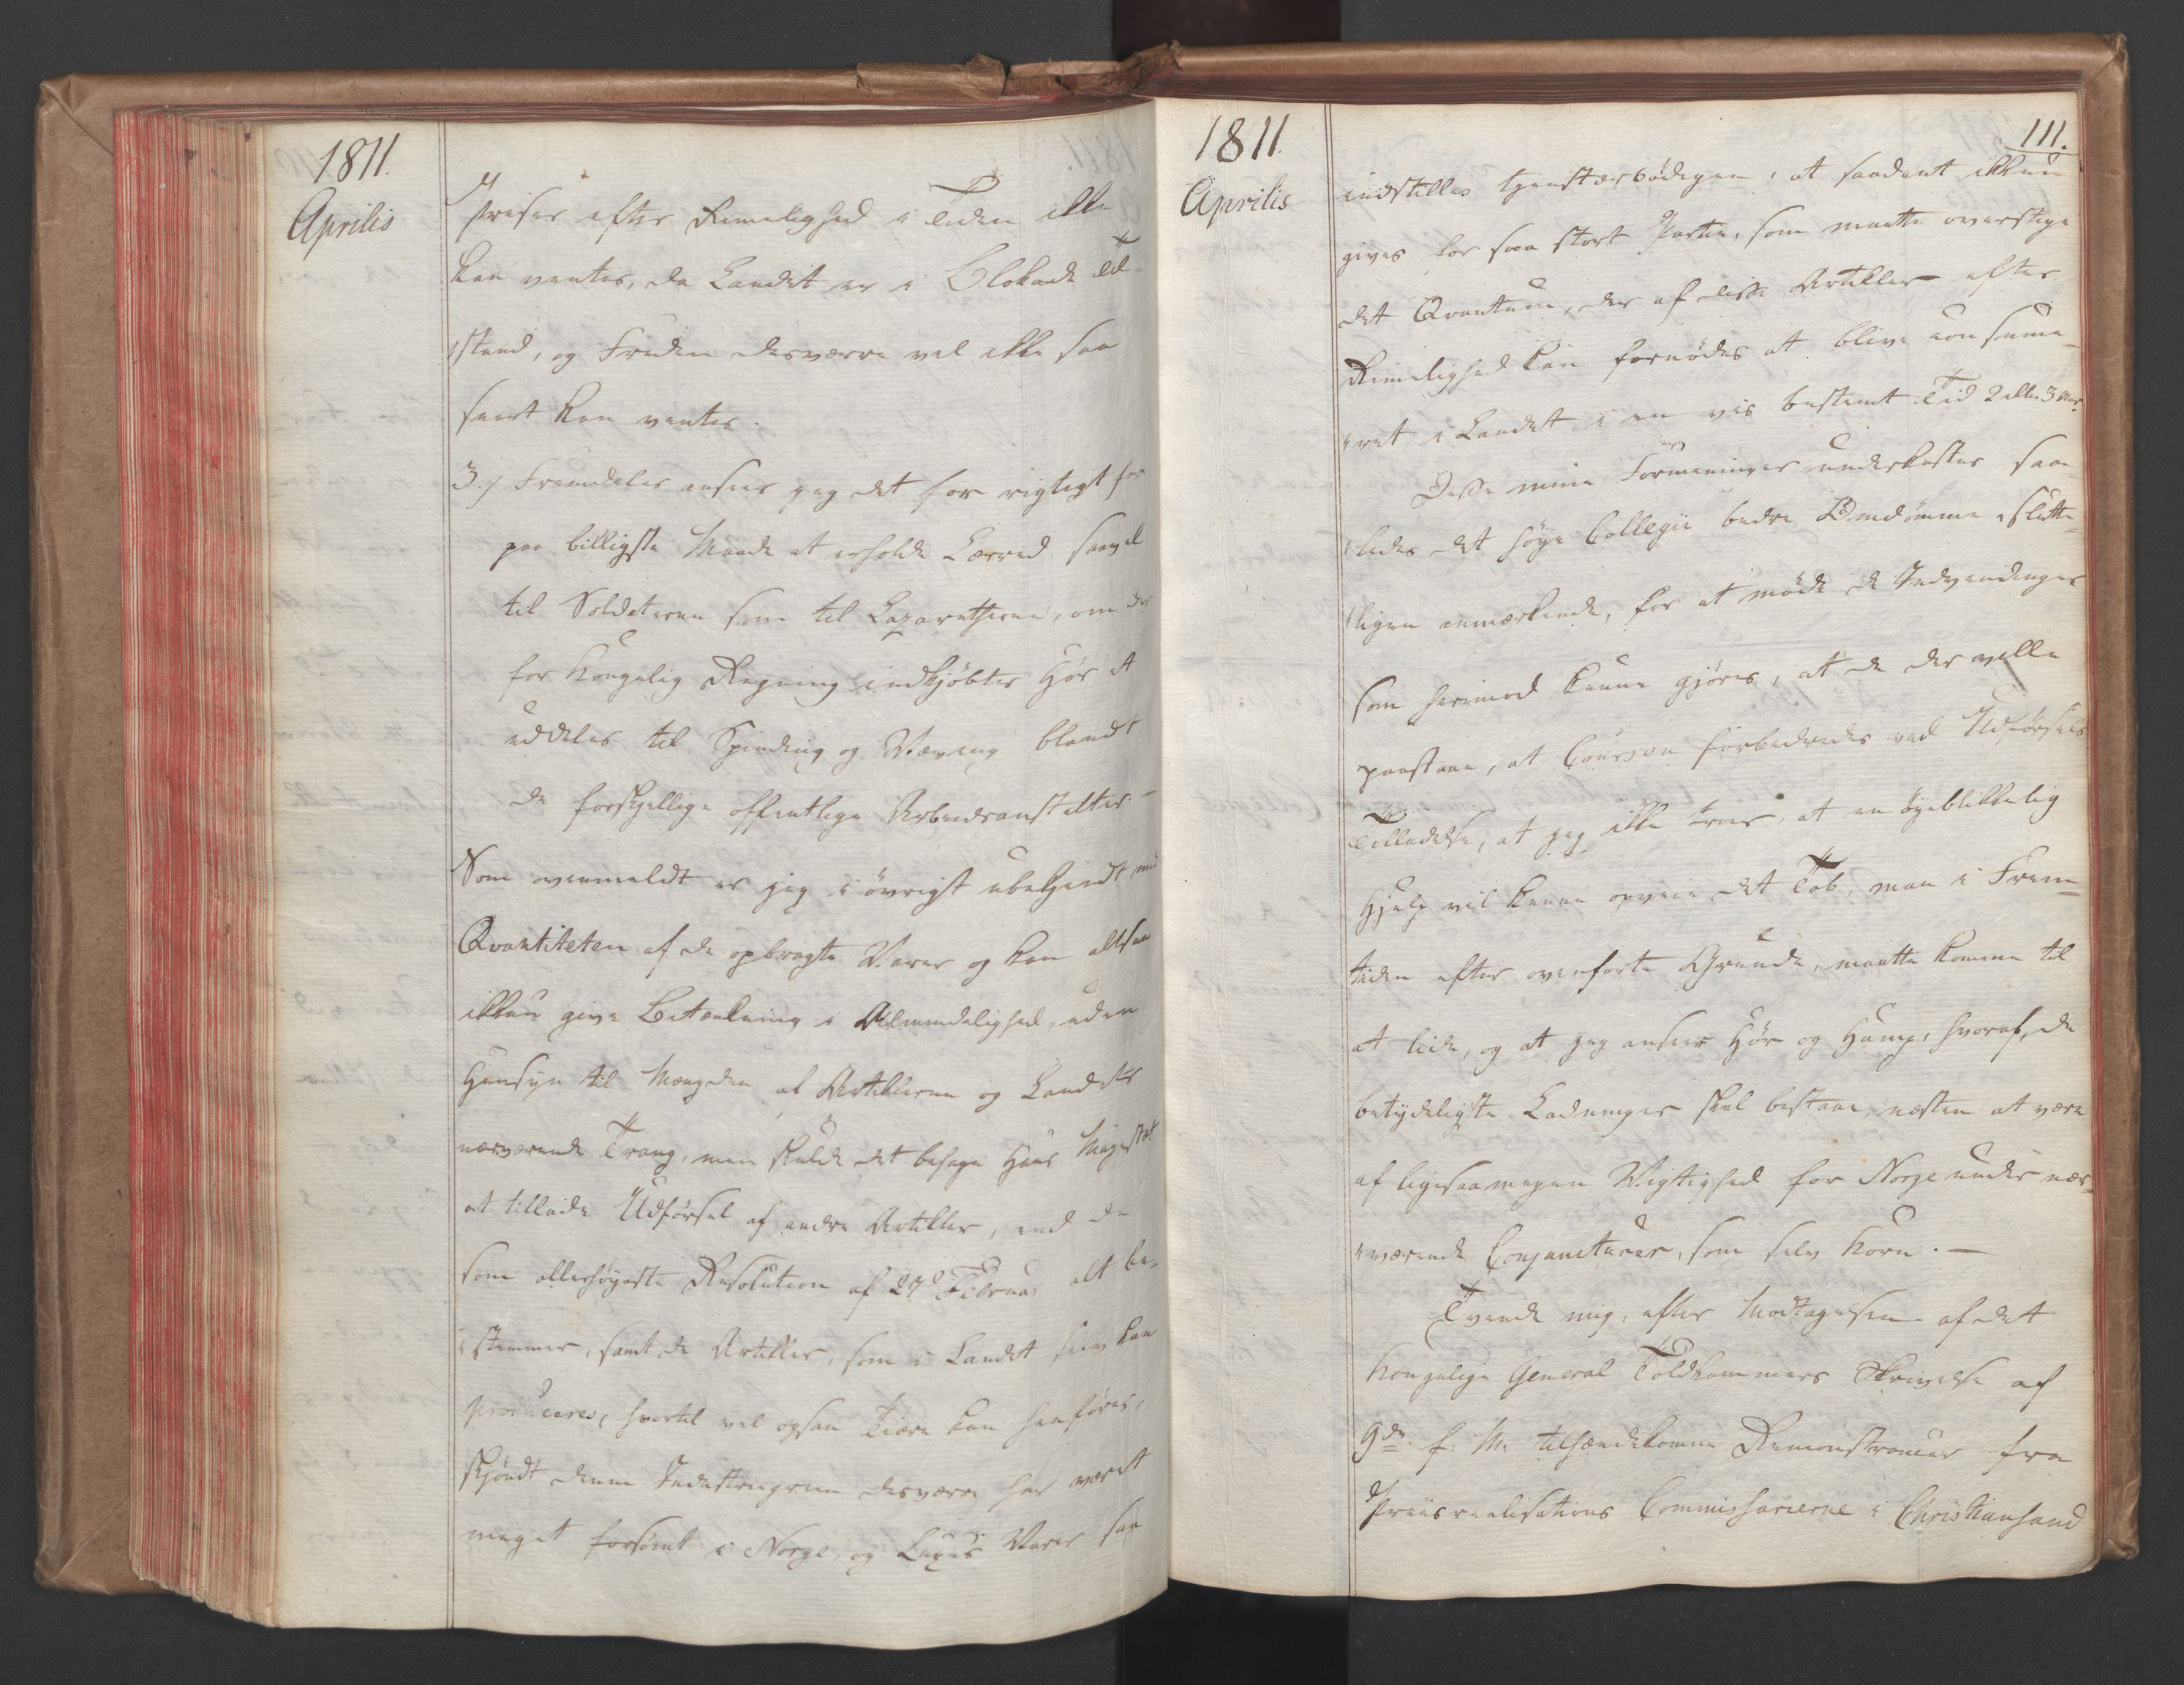 1811.
Aprilis
Priser efter Rimelighed i Tiden ikke
kan ventes, da Landet er i Blokade Til-
stand, og Freden desværre vel ikke saa
snart kan ventes.
3./ Fremdeles ansees jeg det for rigtigt for
paa billigste Maade at erholde Lærred saavel
til Soldaterne som til Lazaretherne, om der
for Kongelig Regning indkjøbtes Hør at
uddeles til Spinding og Væving blandt
de forskjellige offentlige Arbeidsanstalter. —
Som ovenmeldt er jeg i øvrigt ubekjendt med
Qvantiteten af de opbragte Varer og kan altsaa
ikkun give Betænkning i Almindelighed, uden
Hensyn til Mængden af Artiklerne og Landets
nærværende Trang, men skulde det behage Hans Majestæt
at tillade Udførsel af andre Artikler, end de
som allerhøyeste Resolution af 27d Februar alt be-
stemmer, samt de Artikler, som i Landet selv kan
produceres, hvortil vel ogsaa Tiære kan henføres,
skjøndt denne Industriegreen desværre har været
meget forsømt i Norge, og Luxus Varer saa
1811.
Aprilis
111.
indstilles tjenstærbødigen, at saadant ikkun
gives for saa stort Partie, som maatte overstige
det Qvantum, der af disse Artikler efter
Rimelighed kan fornødes at blive consume-
ret i Landet i en vis bestemt Tid 2 eller 3 Aar.
Disse mine Formeninger underkastes saa-
ledes det høye Collegii bedre Omdømme, slutte-
ligen anmærkende, for at møde de Indvendinger
som herimod kunne gjøres, at de der ville
paastaae, at Coursen forbedredes ved Udførsels
Tilladelse, at jeg ikke troer, at en øyeblikkelig
Hjelp vil kunne opveie det Tab, man i Frem-
tiden efter ovenførte Grunde, maatte komme til
at lide, og at jeg anseer Hør og Hamp, hvoraf de
betydeligste Ladninger skal bestaae, næsten at være
af ligesaamegen Vigtighed for Norge under nær-
værende Conjuncturer, som selv Korn. —
Tvende mig, efter Modtagelsen af det
Kongelige General Toldkammers Skrivelse af
9de f. M. tilhændekomne Remonstrancer fra
Priisrealisations Commissarierne i Christiansand